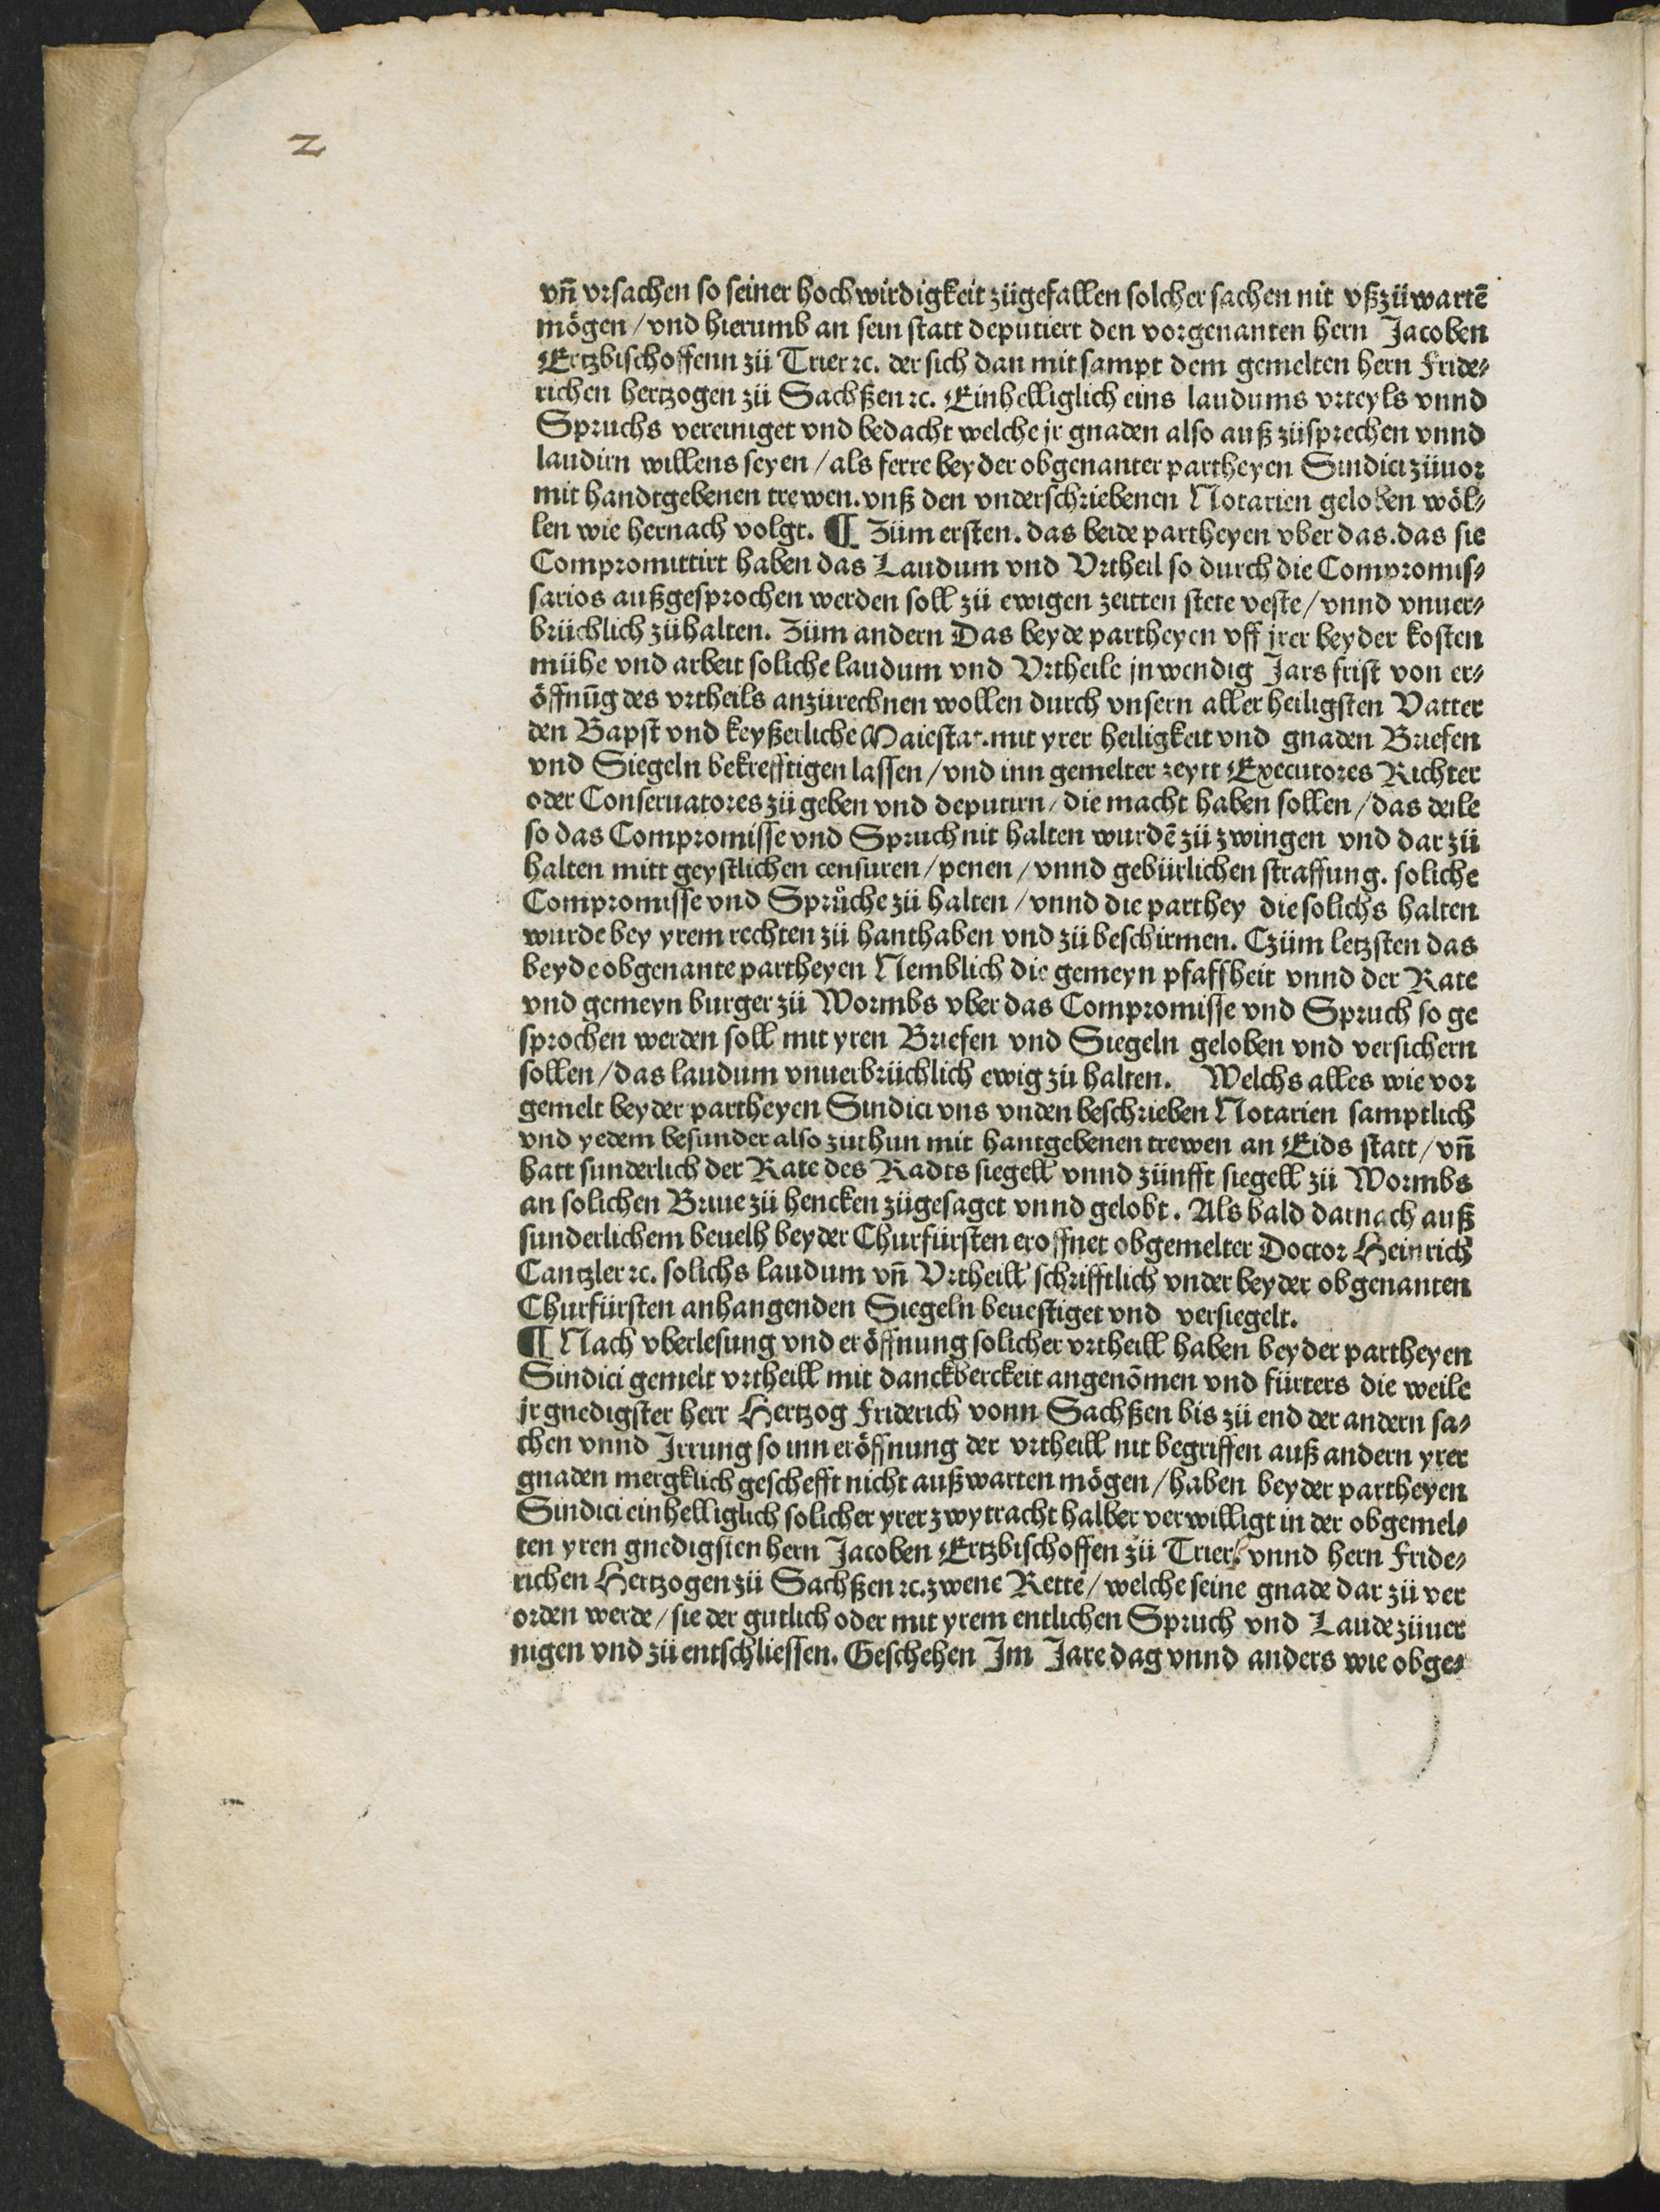 2
vn̄ vrsachen so seiner hochwirdigkeit zügefallen solcher sachen nit vßzüwartē
mögen / vnd hierumb an sein statt deputiert den vorgenanten hern Jacoben
Ertzbischoffenn zü Trier ꝛc. der sich dan mit sampt dem gemelten hern Fride⸗
richen hertzogen zü Sachßen ꝛc. Einhelliglich eins laudums vrteyls vnnd
Spruchs vereiniget vnd bedacht welche jr gnaden also auß züsprechen vnnd
laudirn willens seyen / als ferre beyder obgenanter partheyen Sindici züuor
mit handtgebenen trewen. vnß den vnderschriebenen Notarien geloben wöl⸗
len wie hernach volgt. ¶ Züm ersten. das beide partheyen vber das. das sie
Compromittirt haben das Laudum vnd Vrtheil so durch die Compromis⸗
sarios außgesprochen werden soll zü ewigen zeitten stete veste / vnnd vnuer⸗
brüchlich zühalten. Züm andern Das beyde partheyen vff jrer beyder kosten
mühe vnd arbeit soliche laudum vnd Vrtheile jnwendig Jars frist von er⸗
öffnūg des vrtheils anzürechnen wollen durch vnsern aller heiligsten Vatter
den Bapst vnd keyßerliche Maiestat. mit yrer heiligkeit vnd gnaden Briefen
vnd Siegeln bekrefftigen lassen / vnd inn gemelter zeytt Executores Richter
oder Conseruatores zü geben vnd deputirn / die macht haben sollen / das deile
so das Compromisse vnd Spruch nit halten wurdē zü zwingen vnd dar zü
halten mitt geystlichen censuren / penen / vnnd gebürlichen straffung. soliche
Compromisse vnd Sprůche zü halten / vnnd die parthey die solichs halten
wurde bey yrem rechten zü hanthaben vnd zü beschirmen. Czüm letzsten das
beyde obgenante partheyen Nemblich die gemeyn pfaffheit vnnd der Rate
vnd gemeyn burger zü Wormbs vber das Compromisse vnd Spruch so ge
sprochen werden soll mit yren Briefen vnd Siegeln geloben vnd versichern
sollen / das laudum vnuerbrüchlich ewig zü halten. Welchs alles wie vor
gemelt beyder partheyen Sindici vns vnden beschrieben Notarien samptlich
vnd yedem besunder also zuthun mit hantgebenen trewen an Eids statt / vn̄
hatt sunderlich der Rate des Radts siegell vnnd zünfft siegell zü Wormbs
an solichen Briue zü hencken zügesaget vnnd gelobt. Als bald darnach auß
sunderlichem beuelh beyder Churfürsten eroffnet obgemelter Doctor Heinrich
Cantzler ꝛc. solichs laudum vn̄ Vrtheill schrifftlich vnder beyder obgenanten
Churfürsten anhangenden Siegeln beuestiget vnd versiegelt.
¶ Nach vberlesung vnd eröffnung solicher vrtheill haben beyder partheyen
Sindici gemelt vrtheill mit danckberckeit angenōmen vnd fürters die weile
jr gnedigster herr Hertzog Friderich vonn Sachßen bis zü end der andern sa⸗
chen vnnd Jrrung so inn eröffnung der vrtheill nit begriffen auß andern yrer
gnaden mergklich geschefft nicht außwarten mögen / haben beyder partheyen
Sindici einhelliglich solicher yrer zwytracht halber verwilligt in der obgemel⸗
ten yren gnedigsten hern Jacoben Ertzbischoffen zü Trier. vnnd hern Fride⸗
richen Hertzogen zü Sachßen ꝛc. zwene Rette / welche seine gnade dar zü ver
orden werde / sie der gutlich oder mit yrem entlichen Spruch vnd Laude züuer
nigen vnd zü entschliessen. Geschehen Im Jare dag vnnd anders wie obge⸗